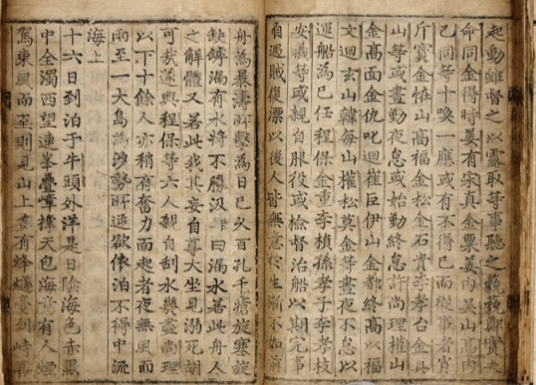 起動雖督之以露取等事聽之藐藐鄭實夫
命同金得時姜有宋真金粟姜內吳山高內
乙同等十喚一應或有不得已而從事者肖
斤寶金怪山高福金松金石貴李孝台金
山等或晝勤夜怠或始勤終怠許尚理權山
金高面金仇叱廻崔巨伊山金都終高以福
文廻玄山韓每山權松莫金等晝夜不怠以
運船為己任程保金重李楨孫孝子李孝枝
安義等或親自服役或檢督治船以期完事
自遇賊復漂以後人皆無意於生漸不如前
舟為暴濤所擊為日已久百孔千瘡旋塞旋
缺罅漏有水將不勝汲曰漏水若此舟人
之解體又若此我其妄自尊大坐見溺死胡
可哉遂與程保等六人親自刮水幾盡尚理
以下十餘人亦稍有奮力而起者夜無風而
雨至一大島為汐勢所逆欲依泊不得中流
海上
十六日到泊于牛頭外洋是日陰海色赤黑
中全濁西望連峯疊嶂撑天包海意有人煙
駕東風而至則見山上多有烽燧臺列峙喜